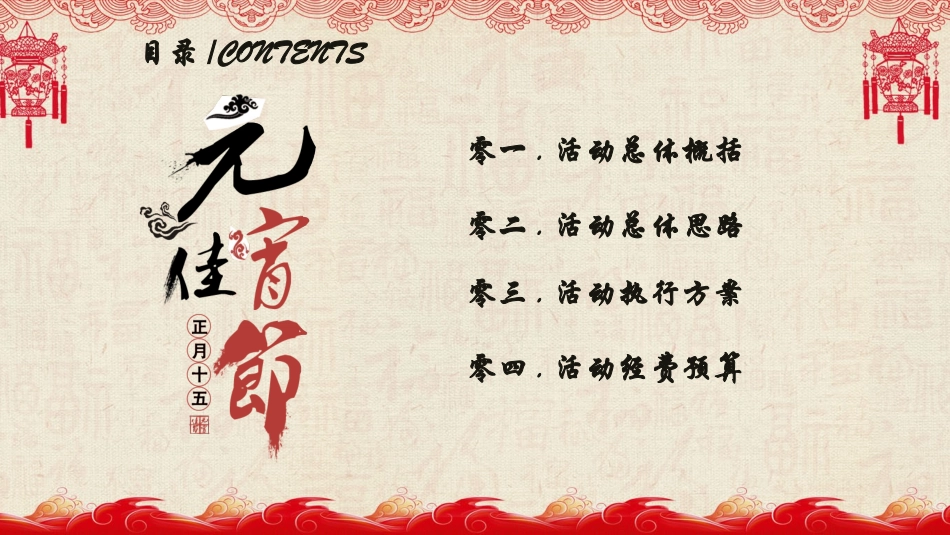 目录 /CONTENTS
元宵佳節
正月十五
零一.活动总体概括
零二.活动总体思路
零三.活动执行方案
零四.活动经费预算